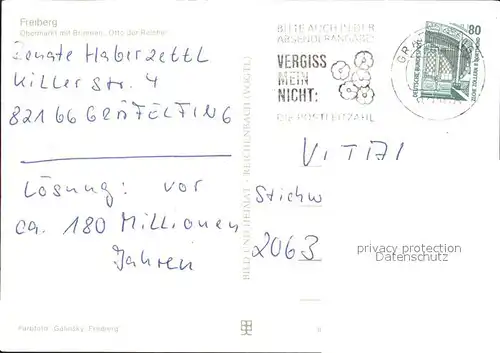 Freiberg
Obermarkt mit Brunnen, Otto der Reiche
Renate Haberzettl
Killer Str. 4
82166 GRÄFELFING
Lösung: vor
ca. 180 Millionen
Jahren
BILD UND HEIMAT · REICHENBACH (VOGTL)
BITTE AUCH IN DER
ABSENDERANGABE
VERGISS
MEIN
NICHT:
DIE POSTLEITZAHL
80
DEUTSCHE BUNDESPOST
ZECHE ZOLLERN II DORTMUND
VITAI
Stichw
2063
privacy protection
Datenschutz
Farbfoto: Galinsky, Freiberg